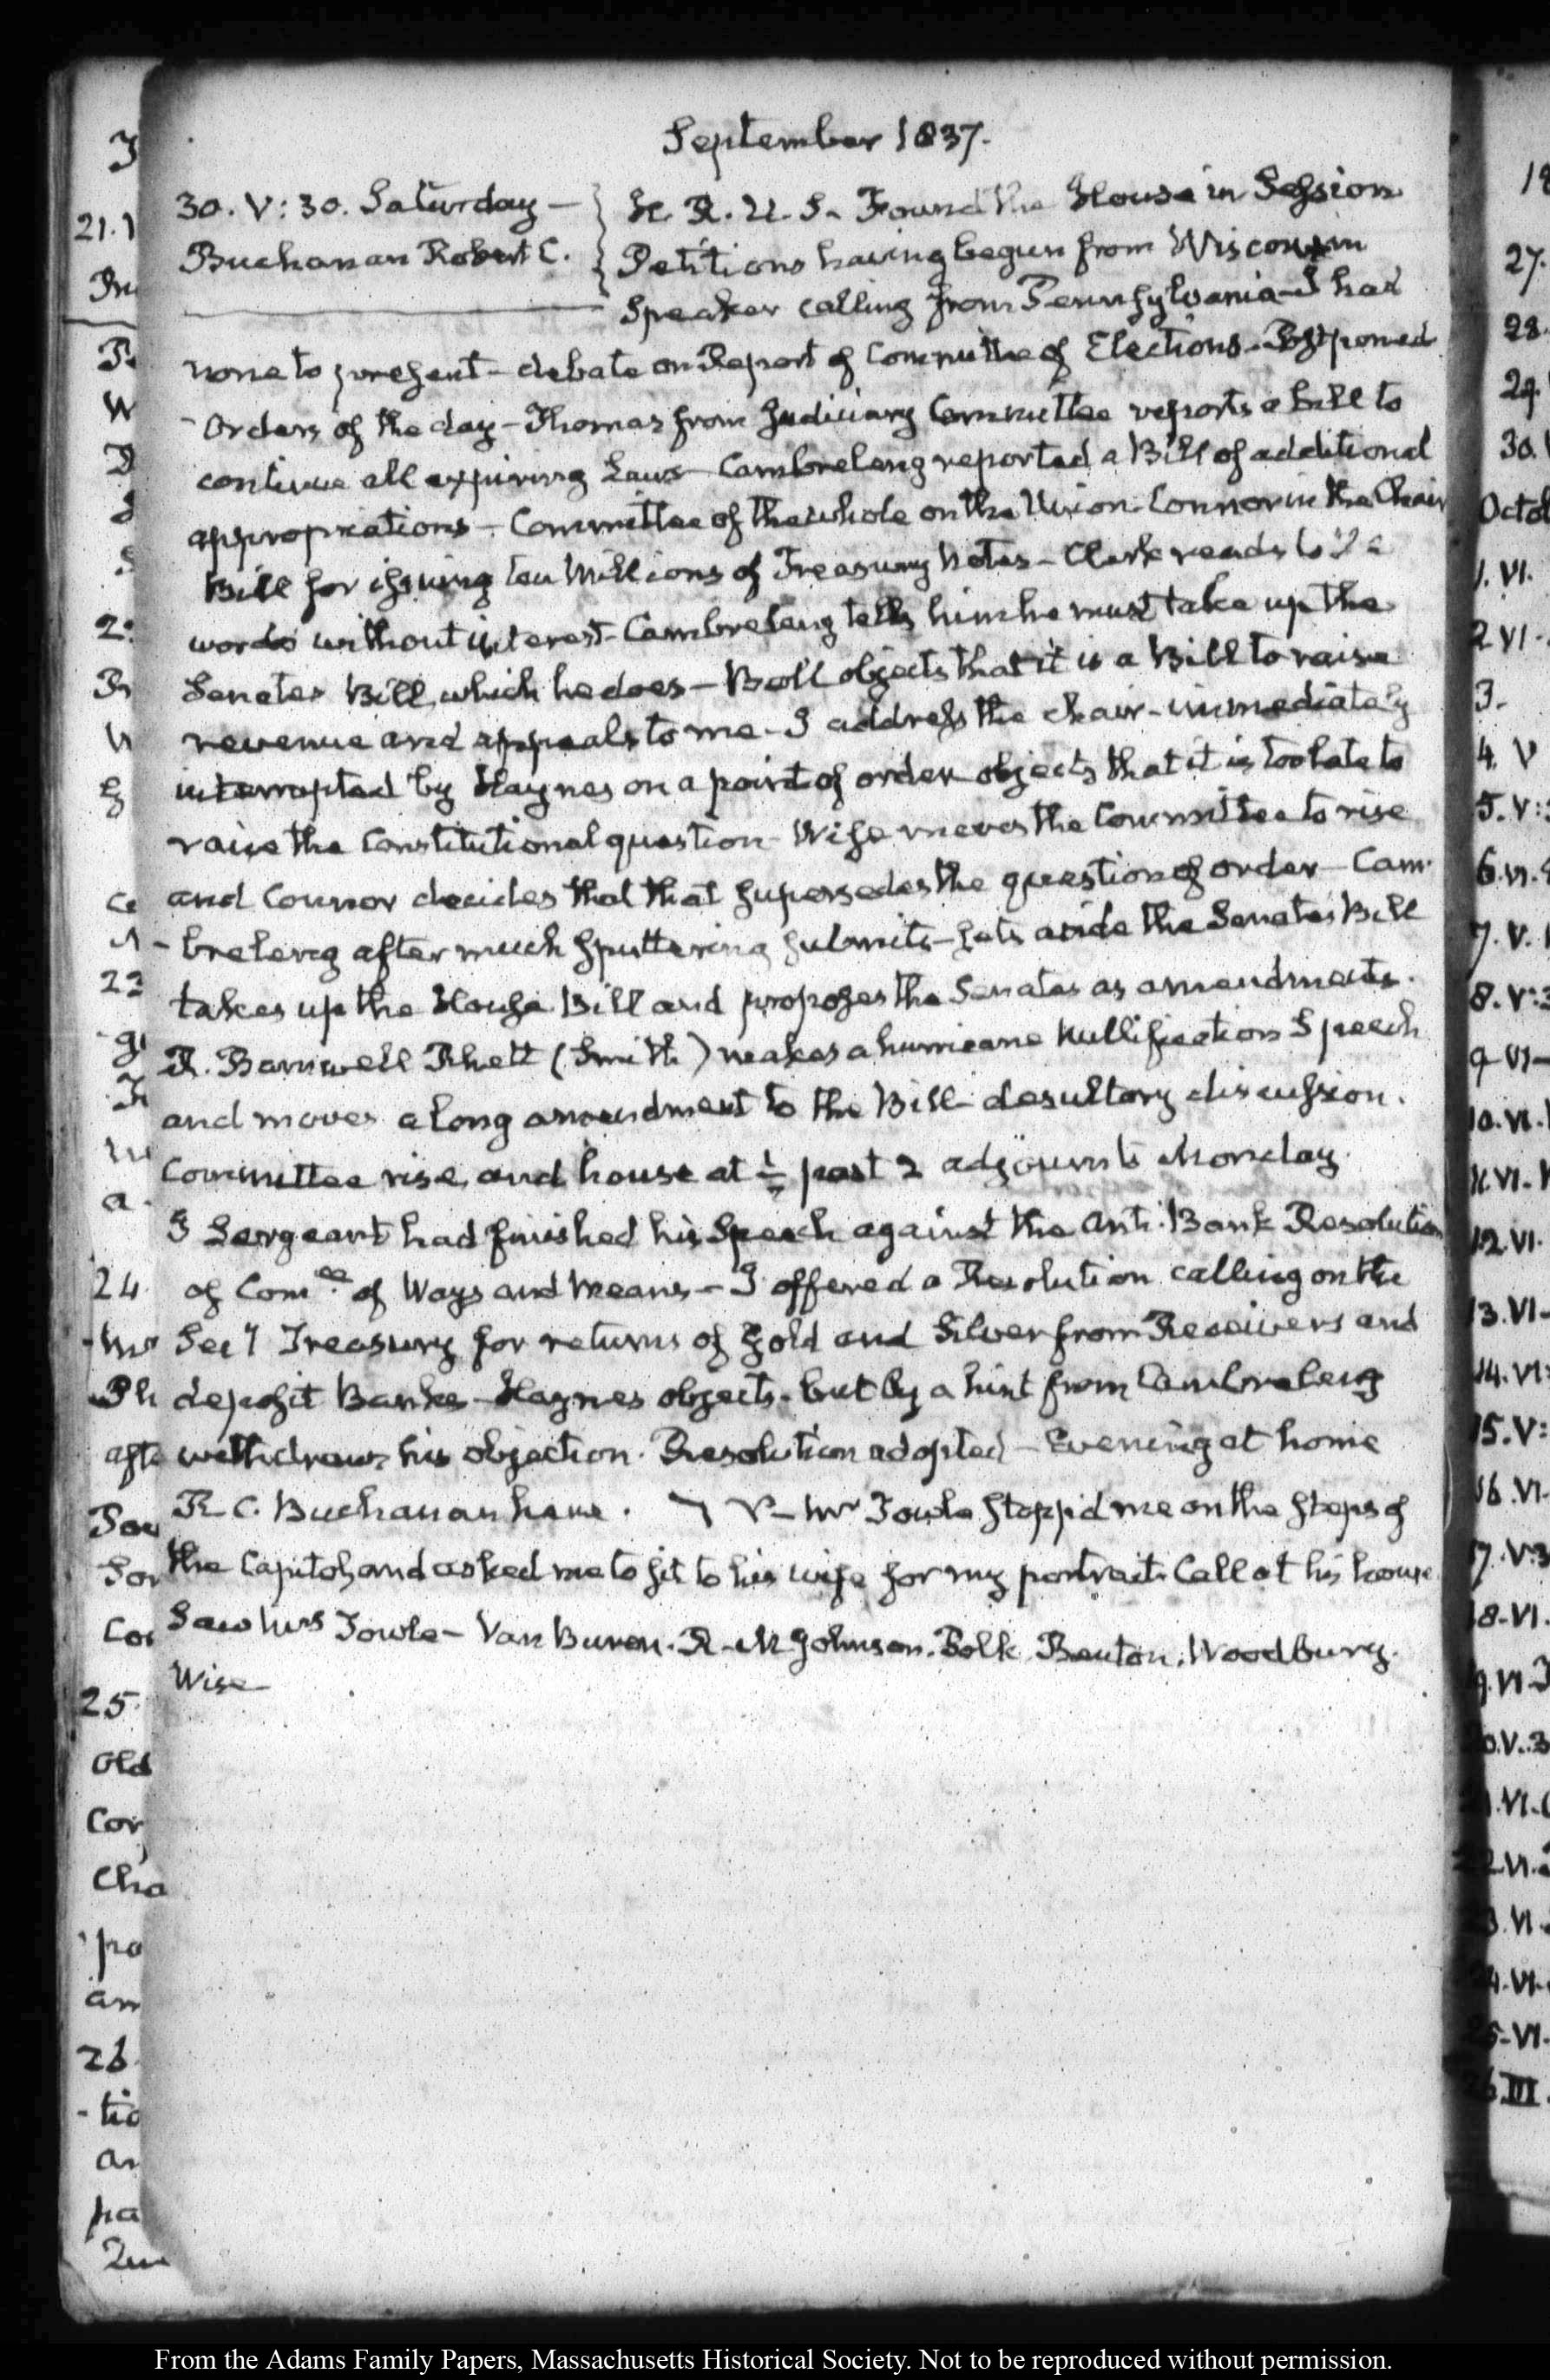 September 1837.
30. V: 30. Saturday — } H. R. U. S. Found the House in Session
Buchanan Robert C. } Petitions having begun from Wisconsin
Speaker calling from Pennsylvania — I had
none to present — debate on Report of Committee of Elections — Postponed
- Orders of the day — Thomas from Judiciary Committee reports a bill to
continue all expiring Laws — Cambreleng reported a Bill of additional
appropriations — Committee of the whole on the Union. Connor in the Chair
Bill for issuing ten Millions of Treasury Notes — Clerk reads to the
words without interest — Cambreleng tells him he must take up the
Senates Bill, which he does — Bell objects that it is a Bill to raise
revenue and appeals to me — I address the chair — immediately
interrupted by Haynes on a point of order objects that it is too late to
raise the Constitutional question — Wise moves the Committee to rise
and Connor decides that that supersedes the question of order — Cam-
- breleng after much sputtering submits — sets aside the Senates Bill
takes up the House Bill and proposes the Senates as amendments.
R. Barnwell Rhett (Smith) makes a hurricane Nullification Speech
and moves a long amendment to the Bill — desultory discussion.
Committee rise, and house at ½ past 2 adjourn to Monday.
J Sergeant had finished his Speech against the Anti-Bank Resolution
of Com.ee of Ways and Means — I offered a Resolution calling on the
Sec'y Treasury for returns of gold and Silver from Receivers and
deposit Banks — Haynes objects — but by a hint from Cambreleng
withdraws his objection. Resolution adopted — Evening at home
R. C. Buchanan here. V — Mr Towle stopp'd me on the steps of
the Capitol, and asked me to sit to his wife for my portrait. Call at his house
Saw Mrs Towle — Van Buren. R. M Johnson. Polk. Benton. Woodbury.
Wise
21.1
24
25
Old
Cor
Cha
26
27.
28.
29.
30.
Octob
1. VI.
2 VI.
3.
4. V
5. V:
6. VI.
7. V.
8. V:3
9 VI—
10. VI.
11. VI.
12. VI.
13. VI—
14. VI:
15. V:
16. VI.
17. V:3
18-VI.
From the Adams Family Papers, Massachusetts Historical Society. Not to be reproduced without permission.